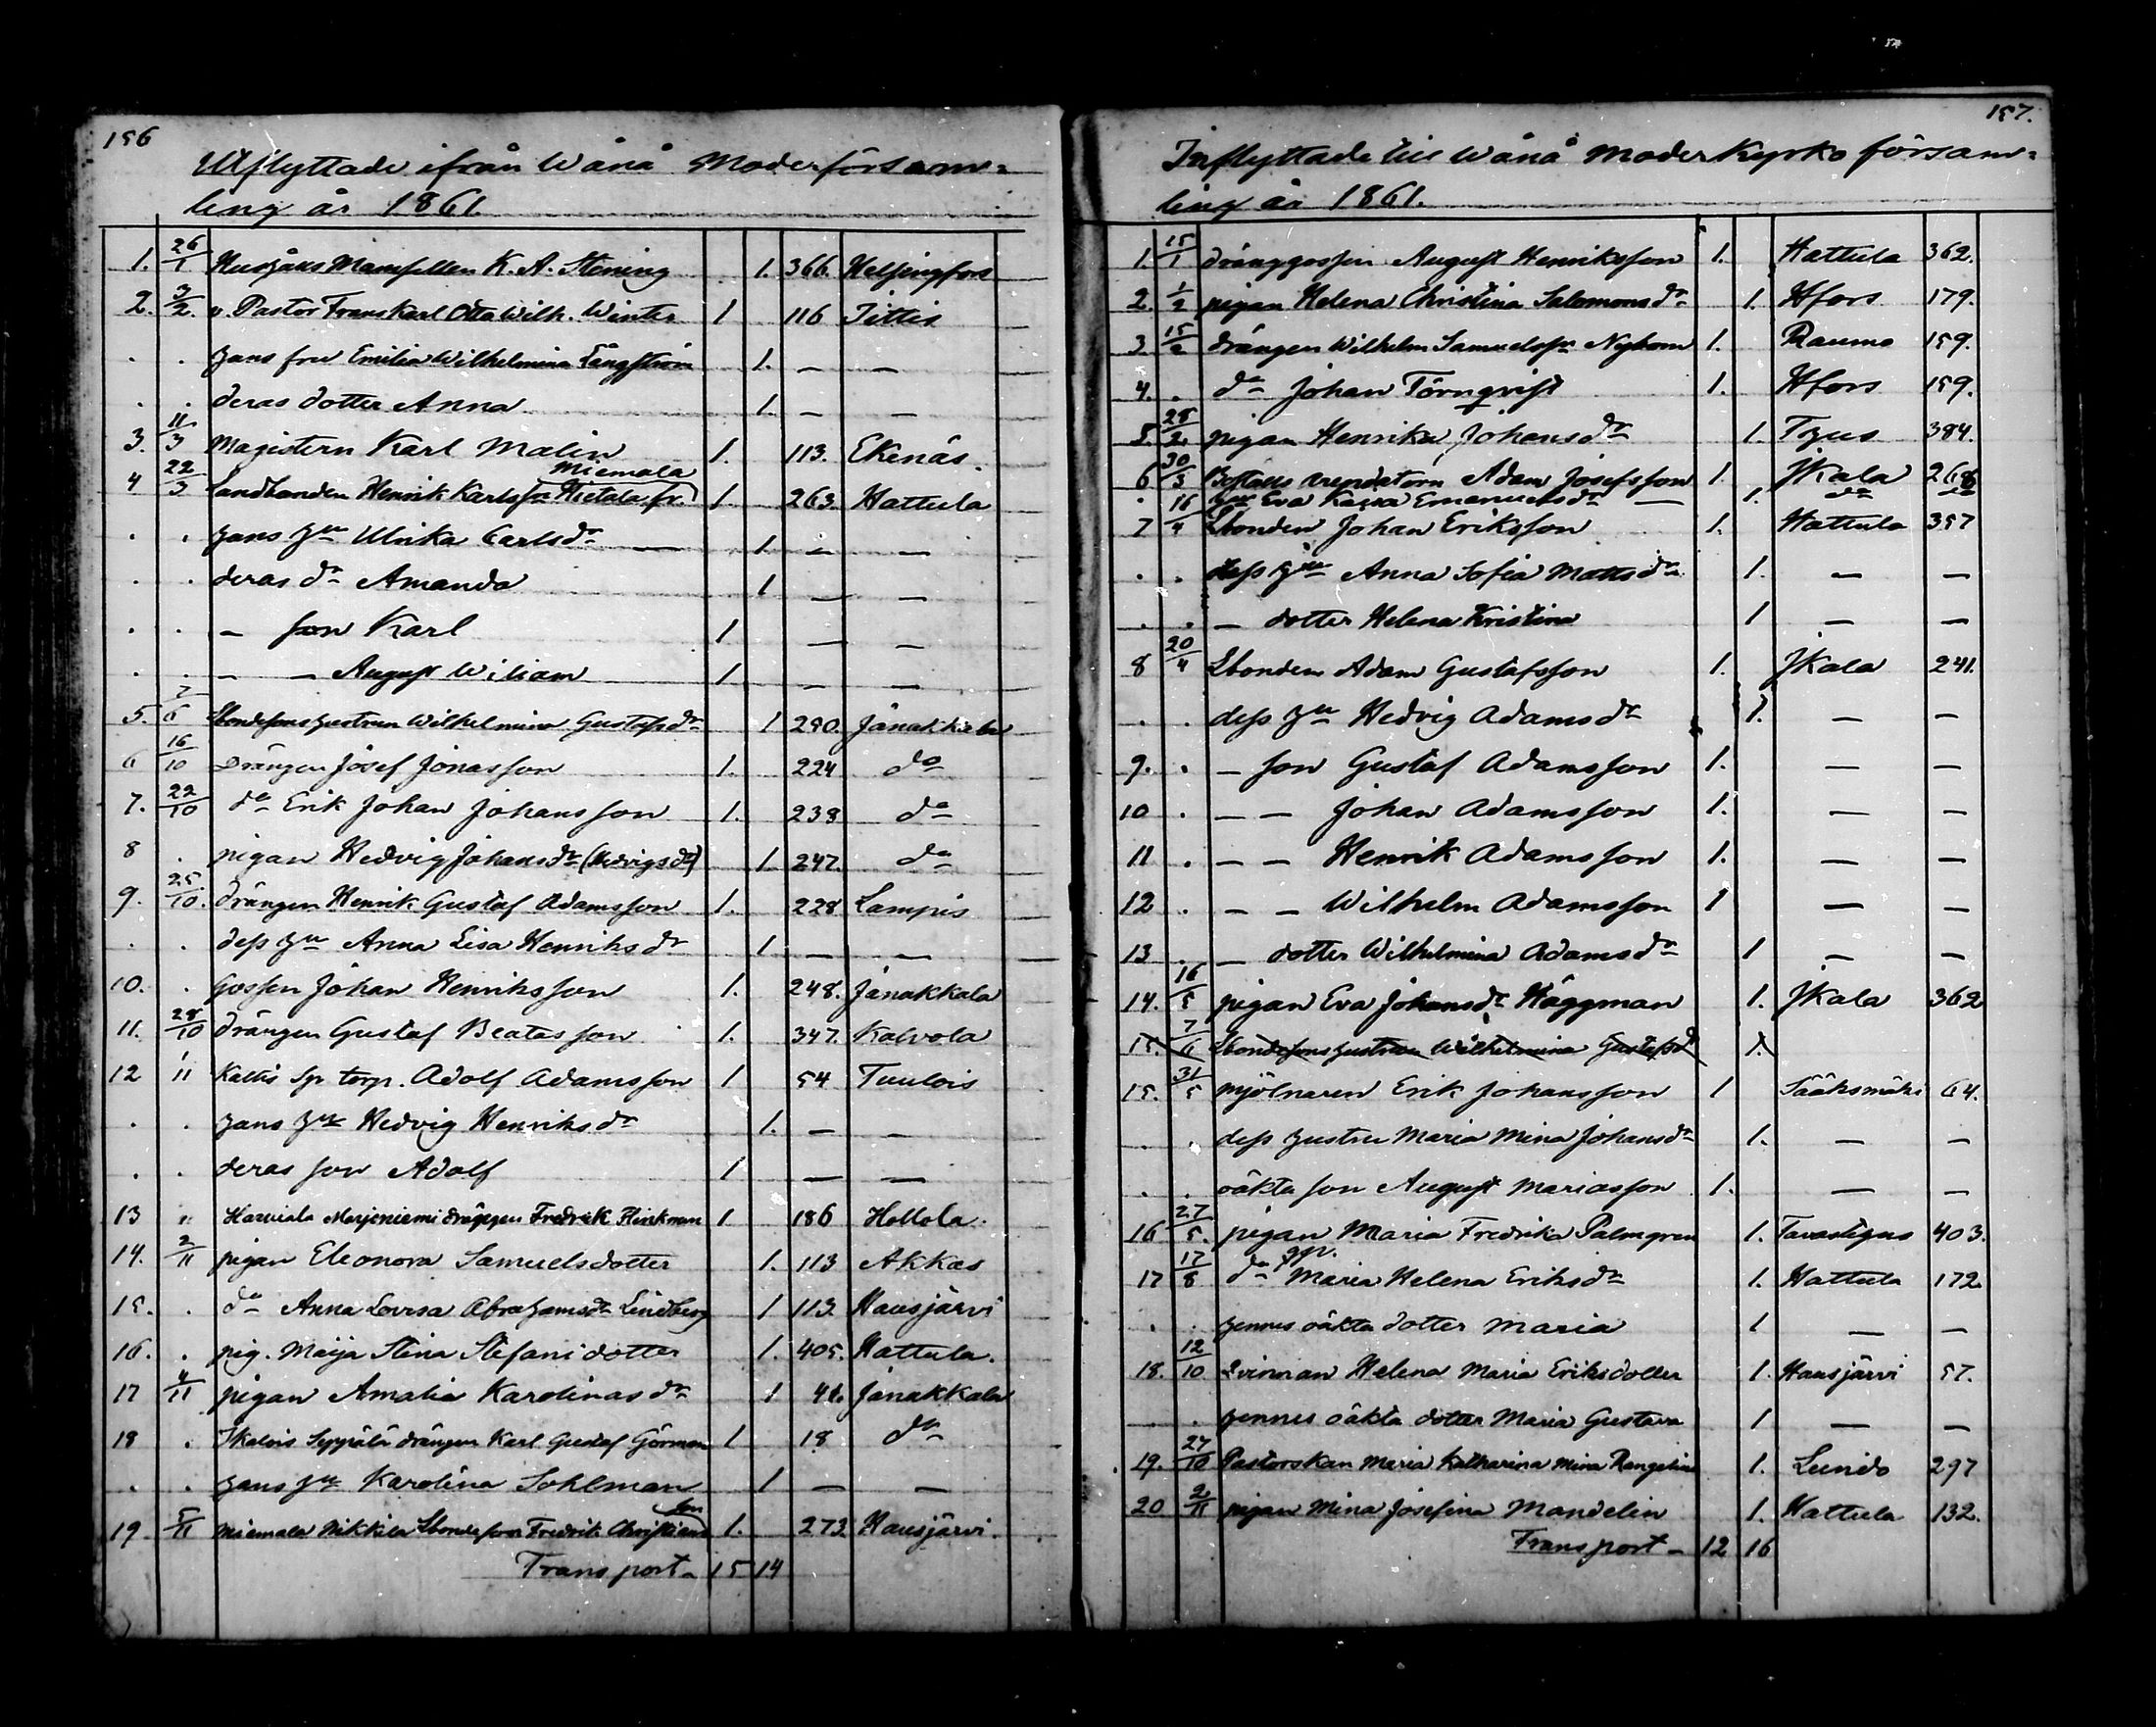 156
Utflyttade ifrån Wånå Moderförsam-
ling år 1861.
1. 26/1 Mamsellen K. A. Stening 1. 366. Helsingfors
2. 3/2. v. Pastor Frans Karl Otto Wilh. Winter 1 116 Jittis
. . hans fru Emilia Wilhelmina Långström 1. — —
. . deras dotter Anna 1. — —
3. 11/3 Magistern Karl Malin 1. 113. Ekenäs.
Miemala
4 22/3 Landbonden Henrik Karlsson Hietala 1. 263. Hattula
. . hans hu Ulrika Carlsdr 1. — —
. . deras dr Amanda 1 — —
. . — son Karl 1 — —
. . — — August Wiliam 1 — —
5. 7/6 Lbondesons hustrun Wilhelmina Gustafsdr 1 290. Janakkala
6 16/10 Drängen Josef Jonasson 1. 224 do
7. 22/10 do Erik Johan Johansson 1. 238 do
8 . pigan Hedvig Johansdr (Hedvigsdr) 1. 247. do
9. 25/10. drängen Henrik Gustaf Adamsson 1. 228 Lampis
. . dess hu Anna Lisa Henriksdr 1. — —
10. . gossen Johan Henriksson 1. 248. Janakkala
11. 28/10 drängen Gustaf Beatasson 1. 347. Kalvola
12 1/11 Kattis Sp torp. Adolf Adamsson 1 54 Tuulois
. . hans hu Hedvig Henriksdr 1. — —
. . deras son Adolf 1 — —
13 " Harviala Marjoniemi drängen Fredrik Flinkman 1 186 Hollola.
14. 2/11 pigan Eleonora Samuelsdotter 1. 113 Akkas
15. . do Anna Lovisa Abrahamsdr Lindberg 1 113. Hausjärvi
16. . pig. Maija Stina Stefanidotter 1. 405. Hattula.
17 4/11 pigan Amalia Karolinasdr 1 41. Janakkala
18 . Ikalois Seppälä drängen Karl Gustaf Görman 1 18 do
. . hans hu Karolina Sohlman 1 — —
son
19 5/11 Miemala Nikkila Lbondeson Fredrik Christians 1. 273. Hausjärvi.
Transport 15 14
157.
Inflyttade till Wånå Moderkyrko försam-
ling år 1861.
1. 15/1 dränggossen August Henriksson 1. Hattula 362.
2. 1/2 pigan Helena Christina Salomonsdr 1. Hfors 179.
3. 15/2 drängen Wilhelm Samuelssn Nyhom 1. Raumo 159.
4. . do Johan Törnqvist 1. Hfors 159.
5. 28/2. pigan Henrika Johansdr 1. Thus 384.
6 30/3 Bostäls arendatorn Adam Josefsson 1. JKala 268
. hu Eva Kajsa Emanuelsdr — 1. do
7 16/4 Lbonden Johan Eriksson 1. Hattula 357
. . dess hu Anna Sofia Mattsdr 1. — —
. . — dotter Helena Kristina 1 — —
8 20/4 Lbonden Adam Gustafsson 1. JKala 241.
. . dess hu Hedvig Adamsdr 1. — —
9. . — son Gustaf Adamsson 1. — —
10 . — — Johan Adamsson 1. — —
11 . — — Henrik Adamsson 1. — —
12 . — — Wilhelm Adamsson 1 — —
13 . — dotter Wilhelmina Adamsdr 1 — —
14. 16/5 pigan Eva Johansdr Häggman 1. JKala 362
15. 7/6 Lbondesons hustrun Wilhelmina Gustafsdr 1.
15. 31/5 mjölnaren Erik Johansson 1 Sääksmäki 64.
. . dess hustru Maria Mina Johansdr 1. — —
. . oäkta son August Mariasson 1. — —
16 27/5. pigan Maria Fredrika Palmgren 1. Tavastehus 403.
17 17/8 do Maria Helena Eriksdr 1. Hattula 172
. . hennes oäkta dotter Maria 1 — —
18. 12/10. Qvinnan Helena Maria Eriksdotter 1. Hausjärvi 57.
. . hennes oäkta dotter Maria Gustava 1 — —
19. 27/10 Pastorskan Maria Katharina Mina Rangelin 1. Lundo 297
20 2/11 pigan Mina Josefina Mandelin 1. Hattula 132.
Transport — 12 16